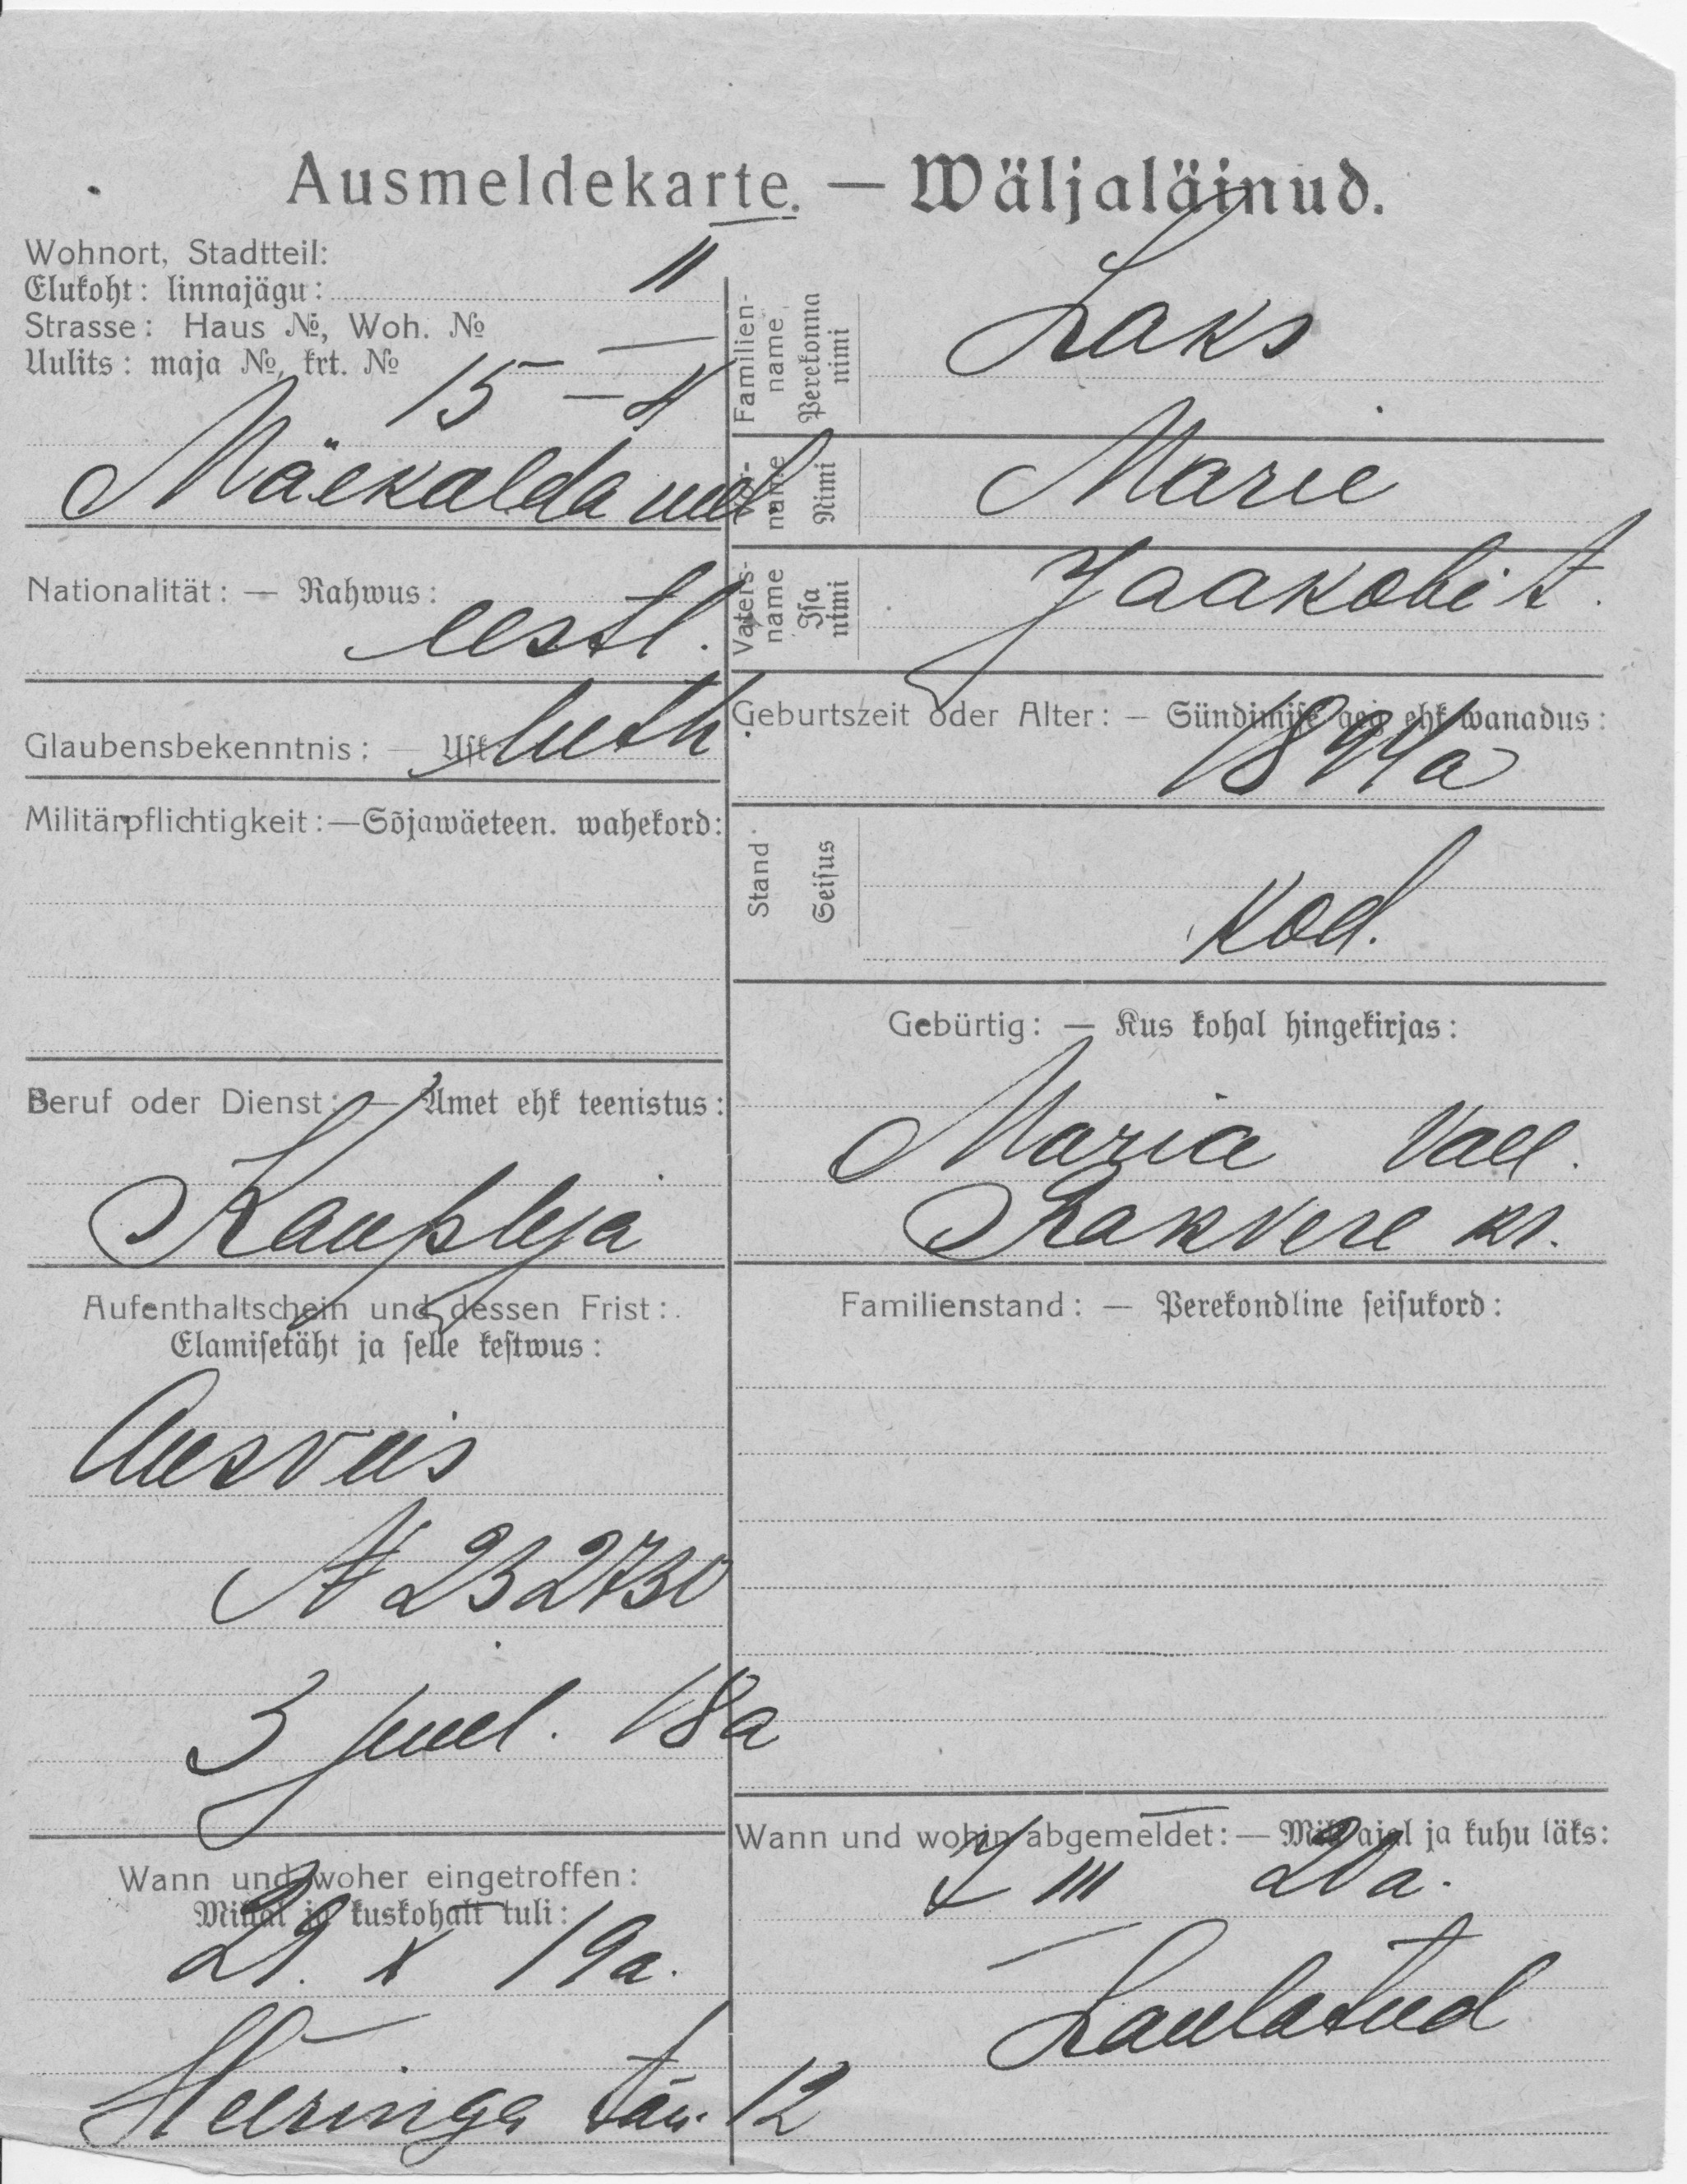 Ausmeldekarte. — Wäljaläinud.
Wohnort, Stadtteil:
Elukoht: linnajägu: II
Strasse: Haus №, Woh. №
Uulits: maja №, krt. №
15 – 4
Mäekalda uul
Nationalität: — Rahwus:
eestl.
Glaubensbekenntnis: — Usk luth.
Militärpflichtigkeit:—Sõjawäeteen. wahekord:
Beruf oder Dienst: — Amet ehk teenistus:
Kaupleja
Aufenthaltschein und dessen Frist:
Elamisetäht ja selle kestwus:
Ausveis
N 232730
3 juul. 18a
Wann und woher eingetroffen:
Millal ja kuskohalt tuli:
29. X 19a.
Heeringa tän. 12
Familien-
name
Perekonna
nimi
Laks
Vor-
name
Nimi
Marie
Vaters-
name
Isa
nimi
Jaakobi t.
Geburtszeit oder Alter: — Sündimise aeg ehk wanadus:
1894a
Stand
Seisus
kod.
Gebürtig: — Kus kohal hingekirjas:
Maria vall.
Rakvere kr.
Familienstand: — Perekondline seisukord:
Wann und wohin abgemeldet: — Mill ajal ja kuhu läks:
III 20a.
Laulatud